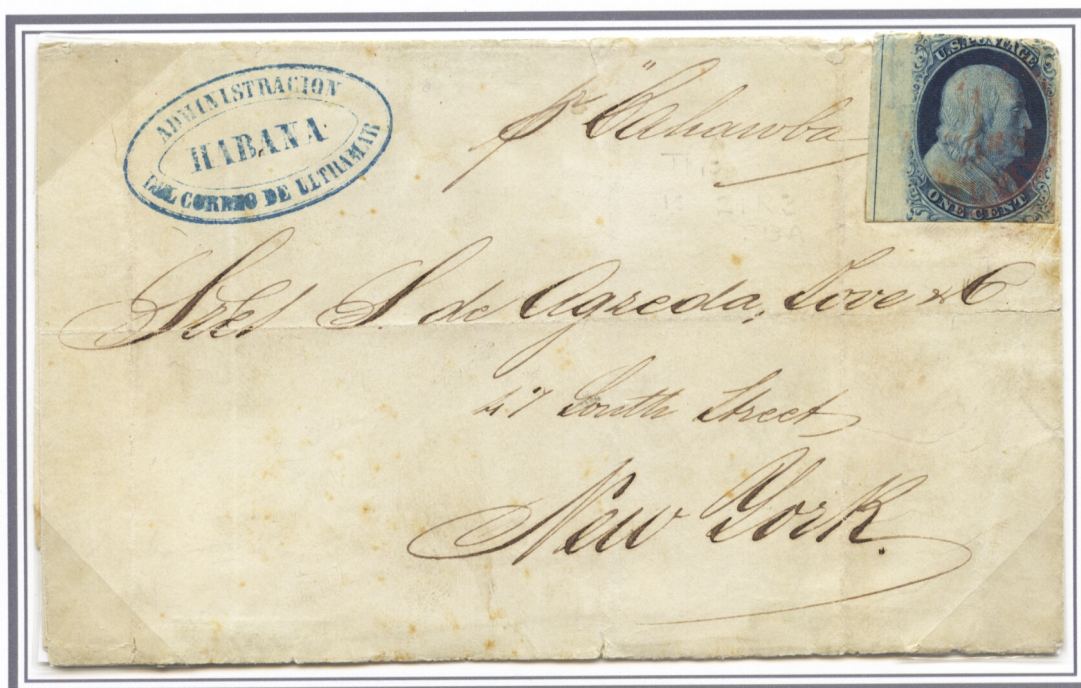 ADMINISTRACION
HABANA
DEL CORREO DE ULTRAMAR
pr "Cahawba
U.S. POSTAGE
ONE CENT
Sres S. de Agreda, Jove & C
47 South Street
New York.